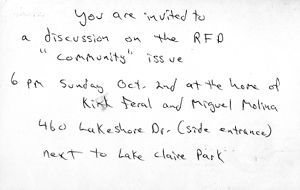 you are invited to
a discussion on the RFD
"community" issue
6 pm Sunday Oct. 2nd at the home of
Kirk Feral and Miguel Molina
460 Lakeshore Dr. (side entrance)
next to Lake Claire Park